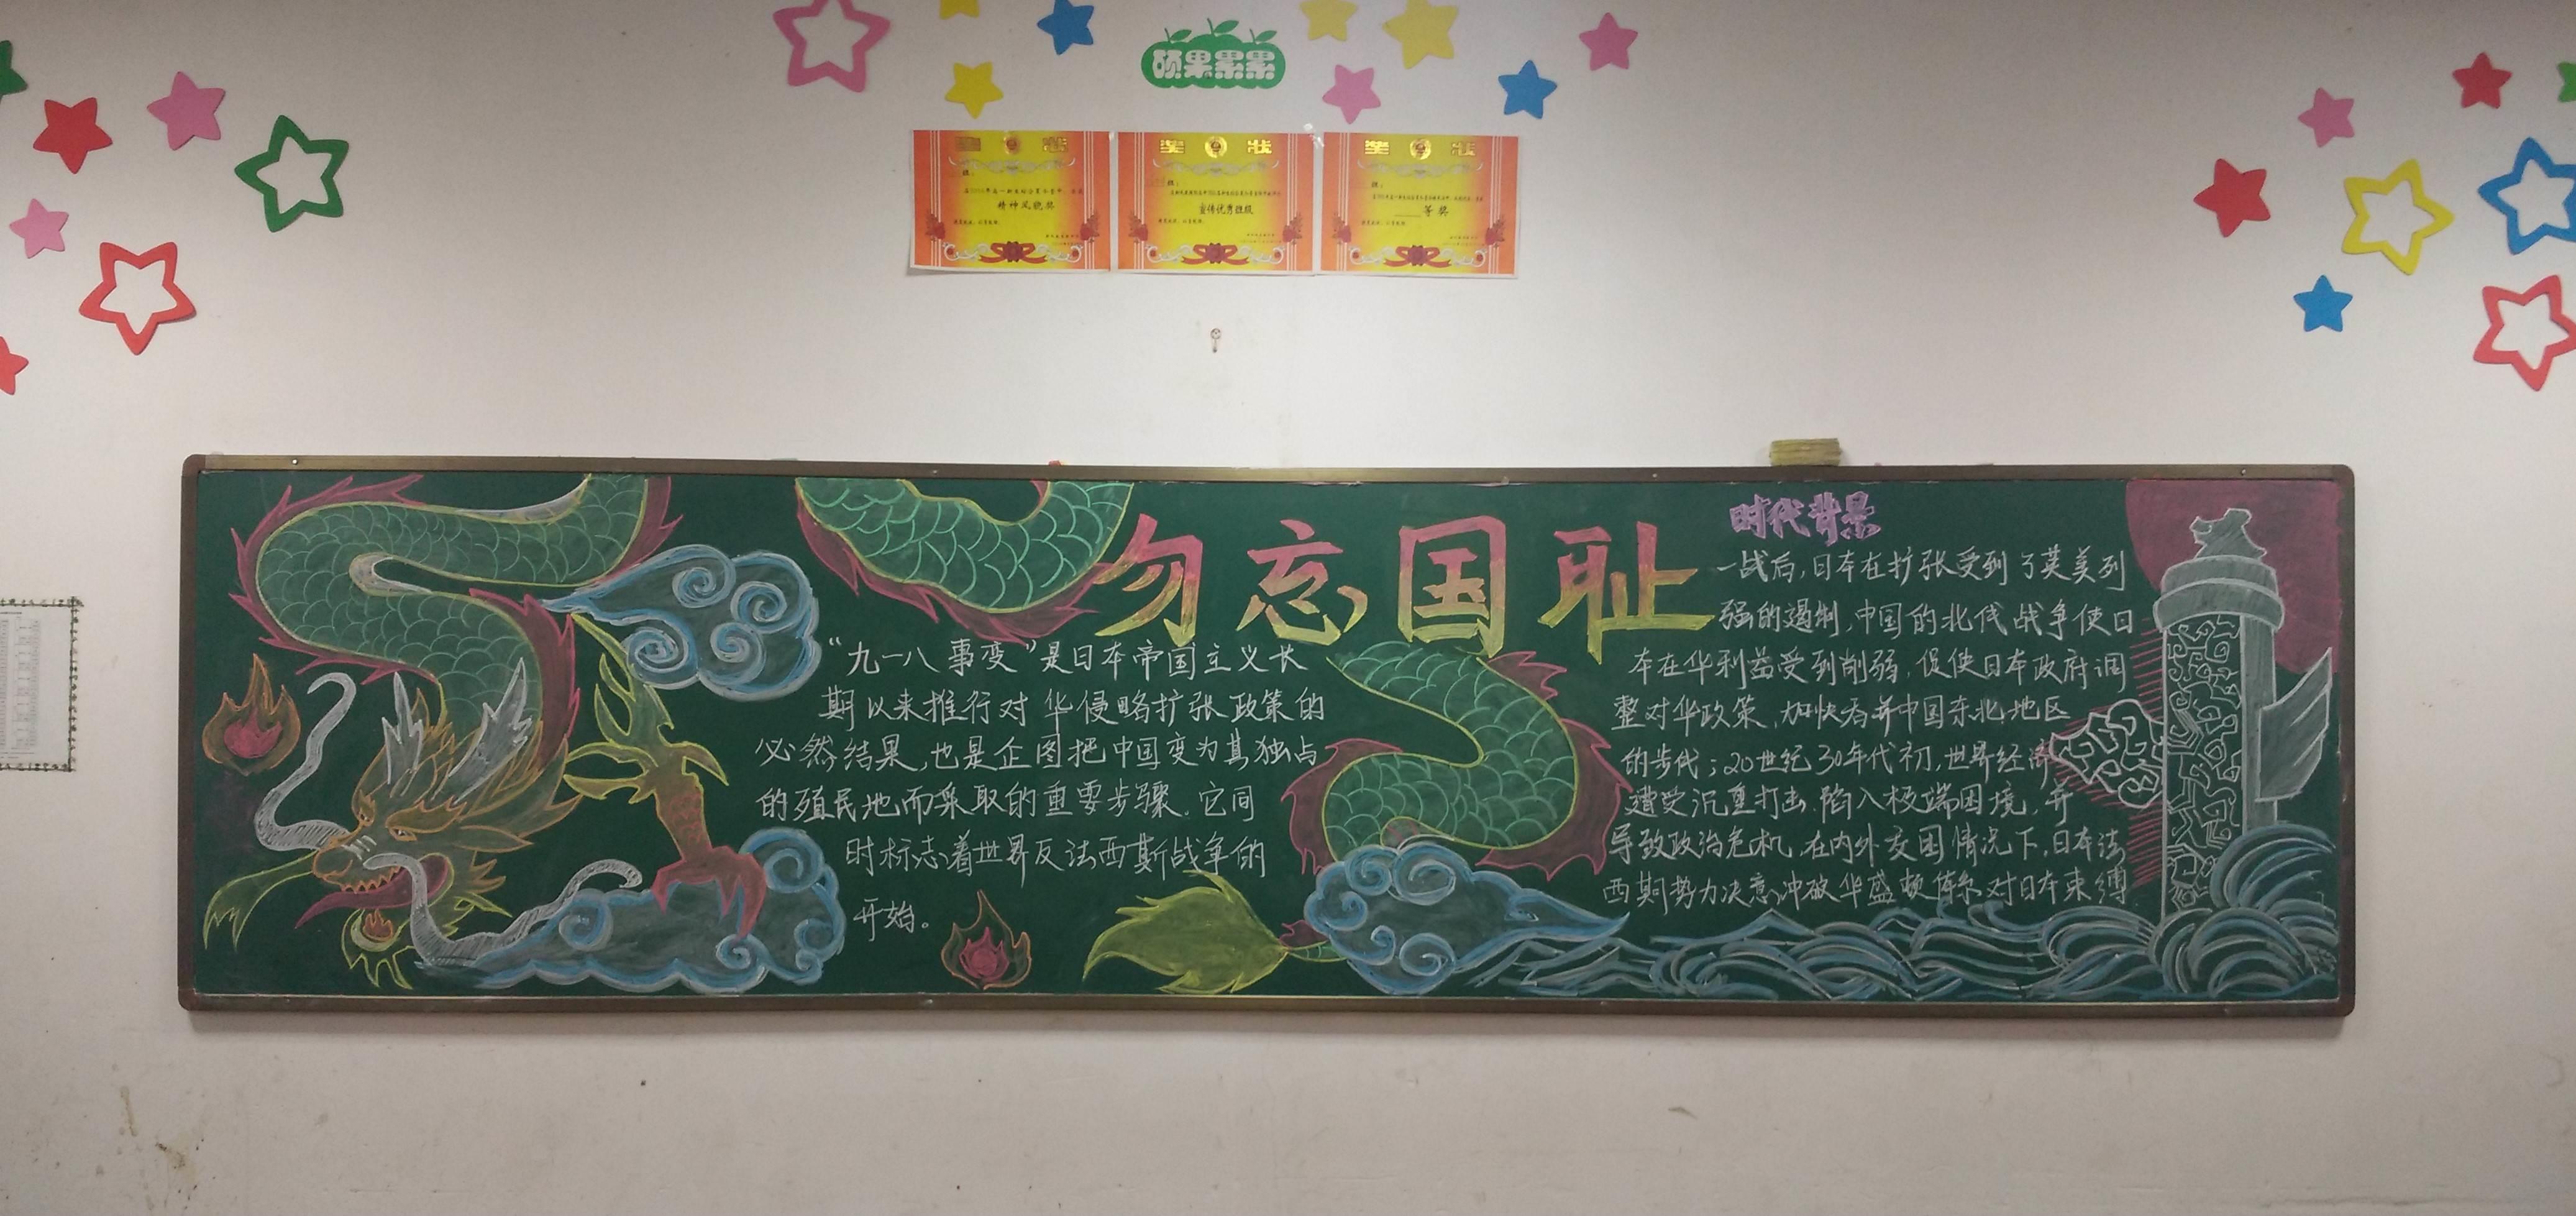 硕果累累
奖状
班：
精神风貌奖
奖状
班：
宣传优秀班级
奖状
班：
等奖
勿忘国耻
“九一八事变”是日本帝国主义长
期以来推行对华侵略扩张政策的
必然结果,也是企图把中国变为其独占
的殖民地而采取的重要步骤.它同
时标志着世界反法西斯战争的
开始。
时代背景
一战后,日本在扩张受到了英美列
强的遏制,中国的北伐战争使日
本在华利益受到削弱,促使日本政府调
整对华政策,加快吞并中国东北地区
的步伐;20世纪30年代初,世界经济
遭受沉重打击,陷入极端困境,并
导致政治危机,在内外交困情况下,日本法
西斯势力决意冲破华盛顿体系对日本束缚